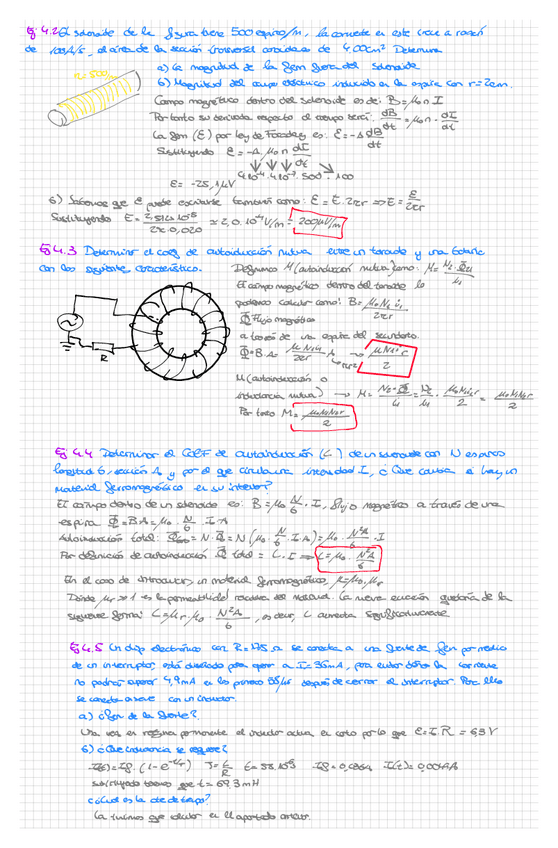 Ej 4.2 El solenoide de la figura tiene 500 espiras/m, la corriente en este crece a razón
de 100 A/s, el área de la sección transversal del solenoide es de 4,00cm² Determina
a) La magnitud de la fem fuera del solenoide
b) Magnitud del campo eléctrico inducido en la espira con r=2cm.
Campo magnético dentro del solenoide es de: B=μ₀nI
Por tanto su derivada respecto al tiempo será: dB/dt = μ₀n · dI/dt
La fem (ε) por ley de Faraday es: ε=-A dB/dt
Sustituyendo ε=-A·μ₀n dI/dt
4·10⁻⁴ 4π·10⁻⁷ 500 100
ε= -25,1μV
b) Sabemos que ε puede escribirse también como: ε=E·2πr ⇒ E= ε/2πr
Sustituyendo E= /2π·0,020 ≈ 2,0·10⁻⁴V/m = 200μV/m
Ej 4.3 Determinar el coef de autoinducción mutua entre un toroide y una
con las siguientes características.
Definimos M (autoinducción mutua) como: M=
El campo magnético dentro del toroide lo
podemos calcular como: B= μ₀N₁i₁/2πr
Φ Flujo magnético
a través de una espira del secundario.
R
M (autoinducción o
inductancia mutua)
Por tanto M=
Ej 4.4 Determinar el COEF de autoinducción (L) de un solenoide con N espiras
longitud b, sección A, y por el que circula una intensidad I, ¿Que causa si hay un
material ferromagnético en su interior?
El campo dentro de un solenoide es: B=μ₀ N/b · I, flujo magnético a través de una
espira Φ=B·A=μ₀ · N/b · I·A
Autoinducción total: = N·Φ = N(μ₀ · N/b · I·A) = μ₀ · N²A/b · I
Por definición de autoinducción Φ total = L·I ⇒ L=μ₀ · N²A/b
En el caso de introducir un material ferromagnético, μ=μ₀μr
Donde μr>>1 es la permeabilidad relativa del material. La nueva ecuación quedaría de la
siguiente forma: L=μr·μ₀ · N²A/b, es decir, L aumenta significativamente
Ej 4.5 Un chip electrónico con R=175Ω se conecta a una fuente de fem por medio
de un interruptor, está diseñado para operar a I=36mA, para evitar daños la corriente
no podrá superar 4,9mA en los primeros 58μs después de cerrar el interruptor. Para ello
se conecta en serie con un inductor.
a) ¿fem de la fuente?
Una vez en régimen permanente el inductor actúa en corto por lo que ε=I·R = 6,3V
b) ¿Que inductancia se requiere?
I(t)=If·(1-e^(-t/τ)) τ=L/R t=58·10⁻⁶ If=0,036A I(t)=0,0049A
sustituyendo tenemos que L=69,3mH
¿Cual es la cte de tiempo?
La tuvimos que calcular en el apartado anterior.